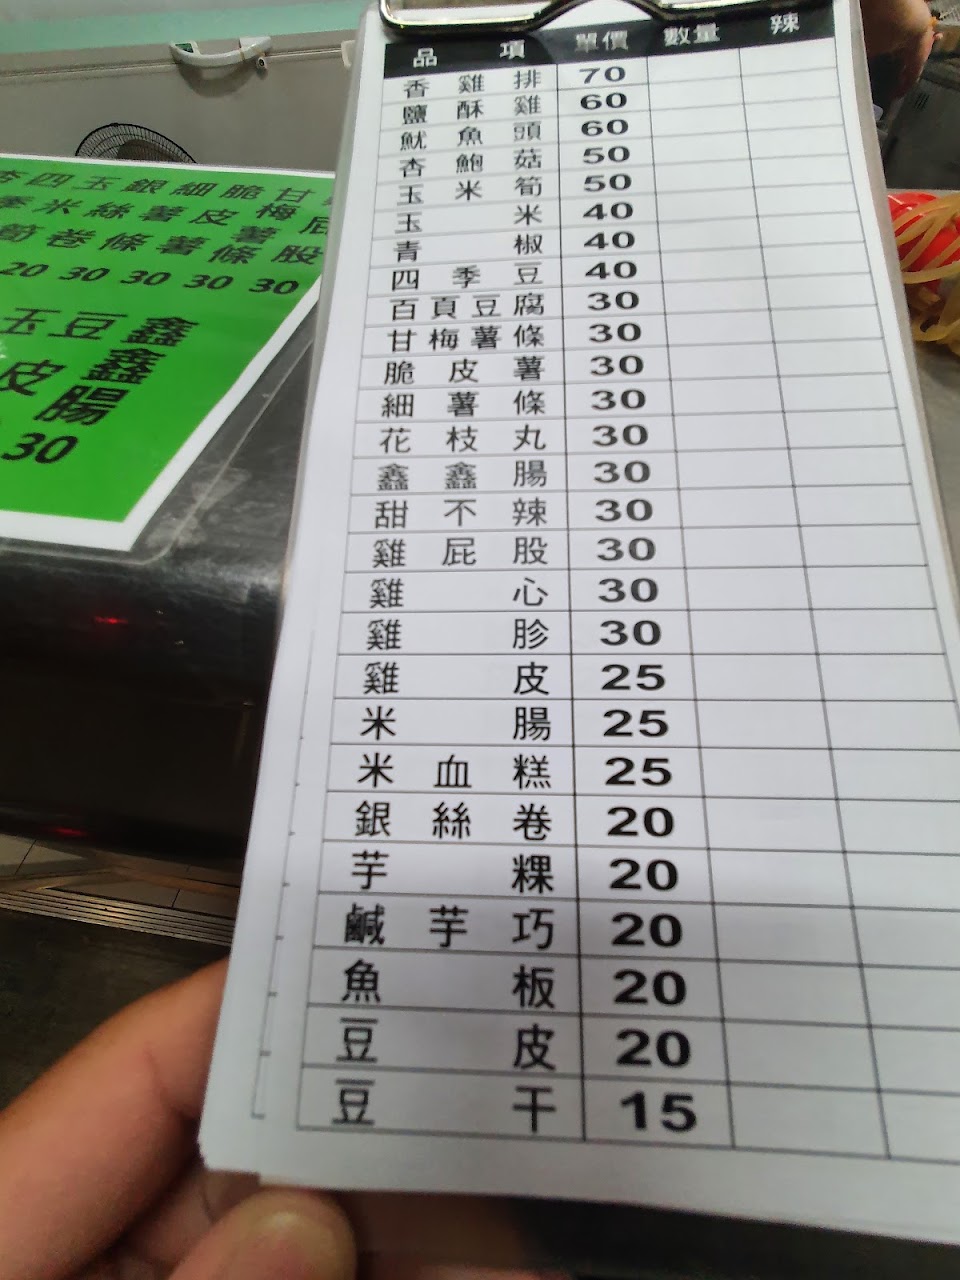 品項 單價 數量 辣
香雞排 70
鹽酥雞 60
魷魚頭 60
杏鮑菇 50
玉米筍 50
玉米 40
青椒 40
四季豆 40
百頁豆腐 30
甘梅薯條 30
脆皮薯 30
細薯條 30
花枝丸 30
鑫鑫腸 30
甜不辣 30
雞屁股 30
雞心 30
雞胗 30
雞皮 25
米腸 25
米血糕 25
銀絲卷 20
芋粿 20
鹹芋巧 20
魚板 20
豆皮 20
豆干 15
四季
玉米筍 20
銀絲卷 30
細薯條 30
脆皮薯 30
甘梅薯條 30
屁股
玉
豆皮
鑫鑫腸 30